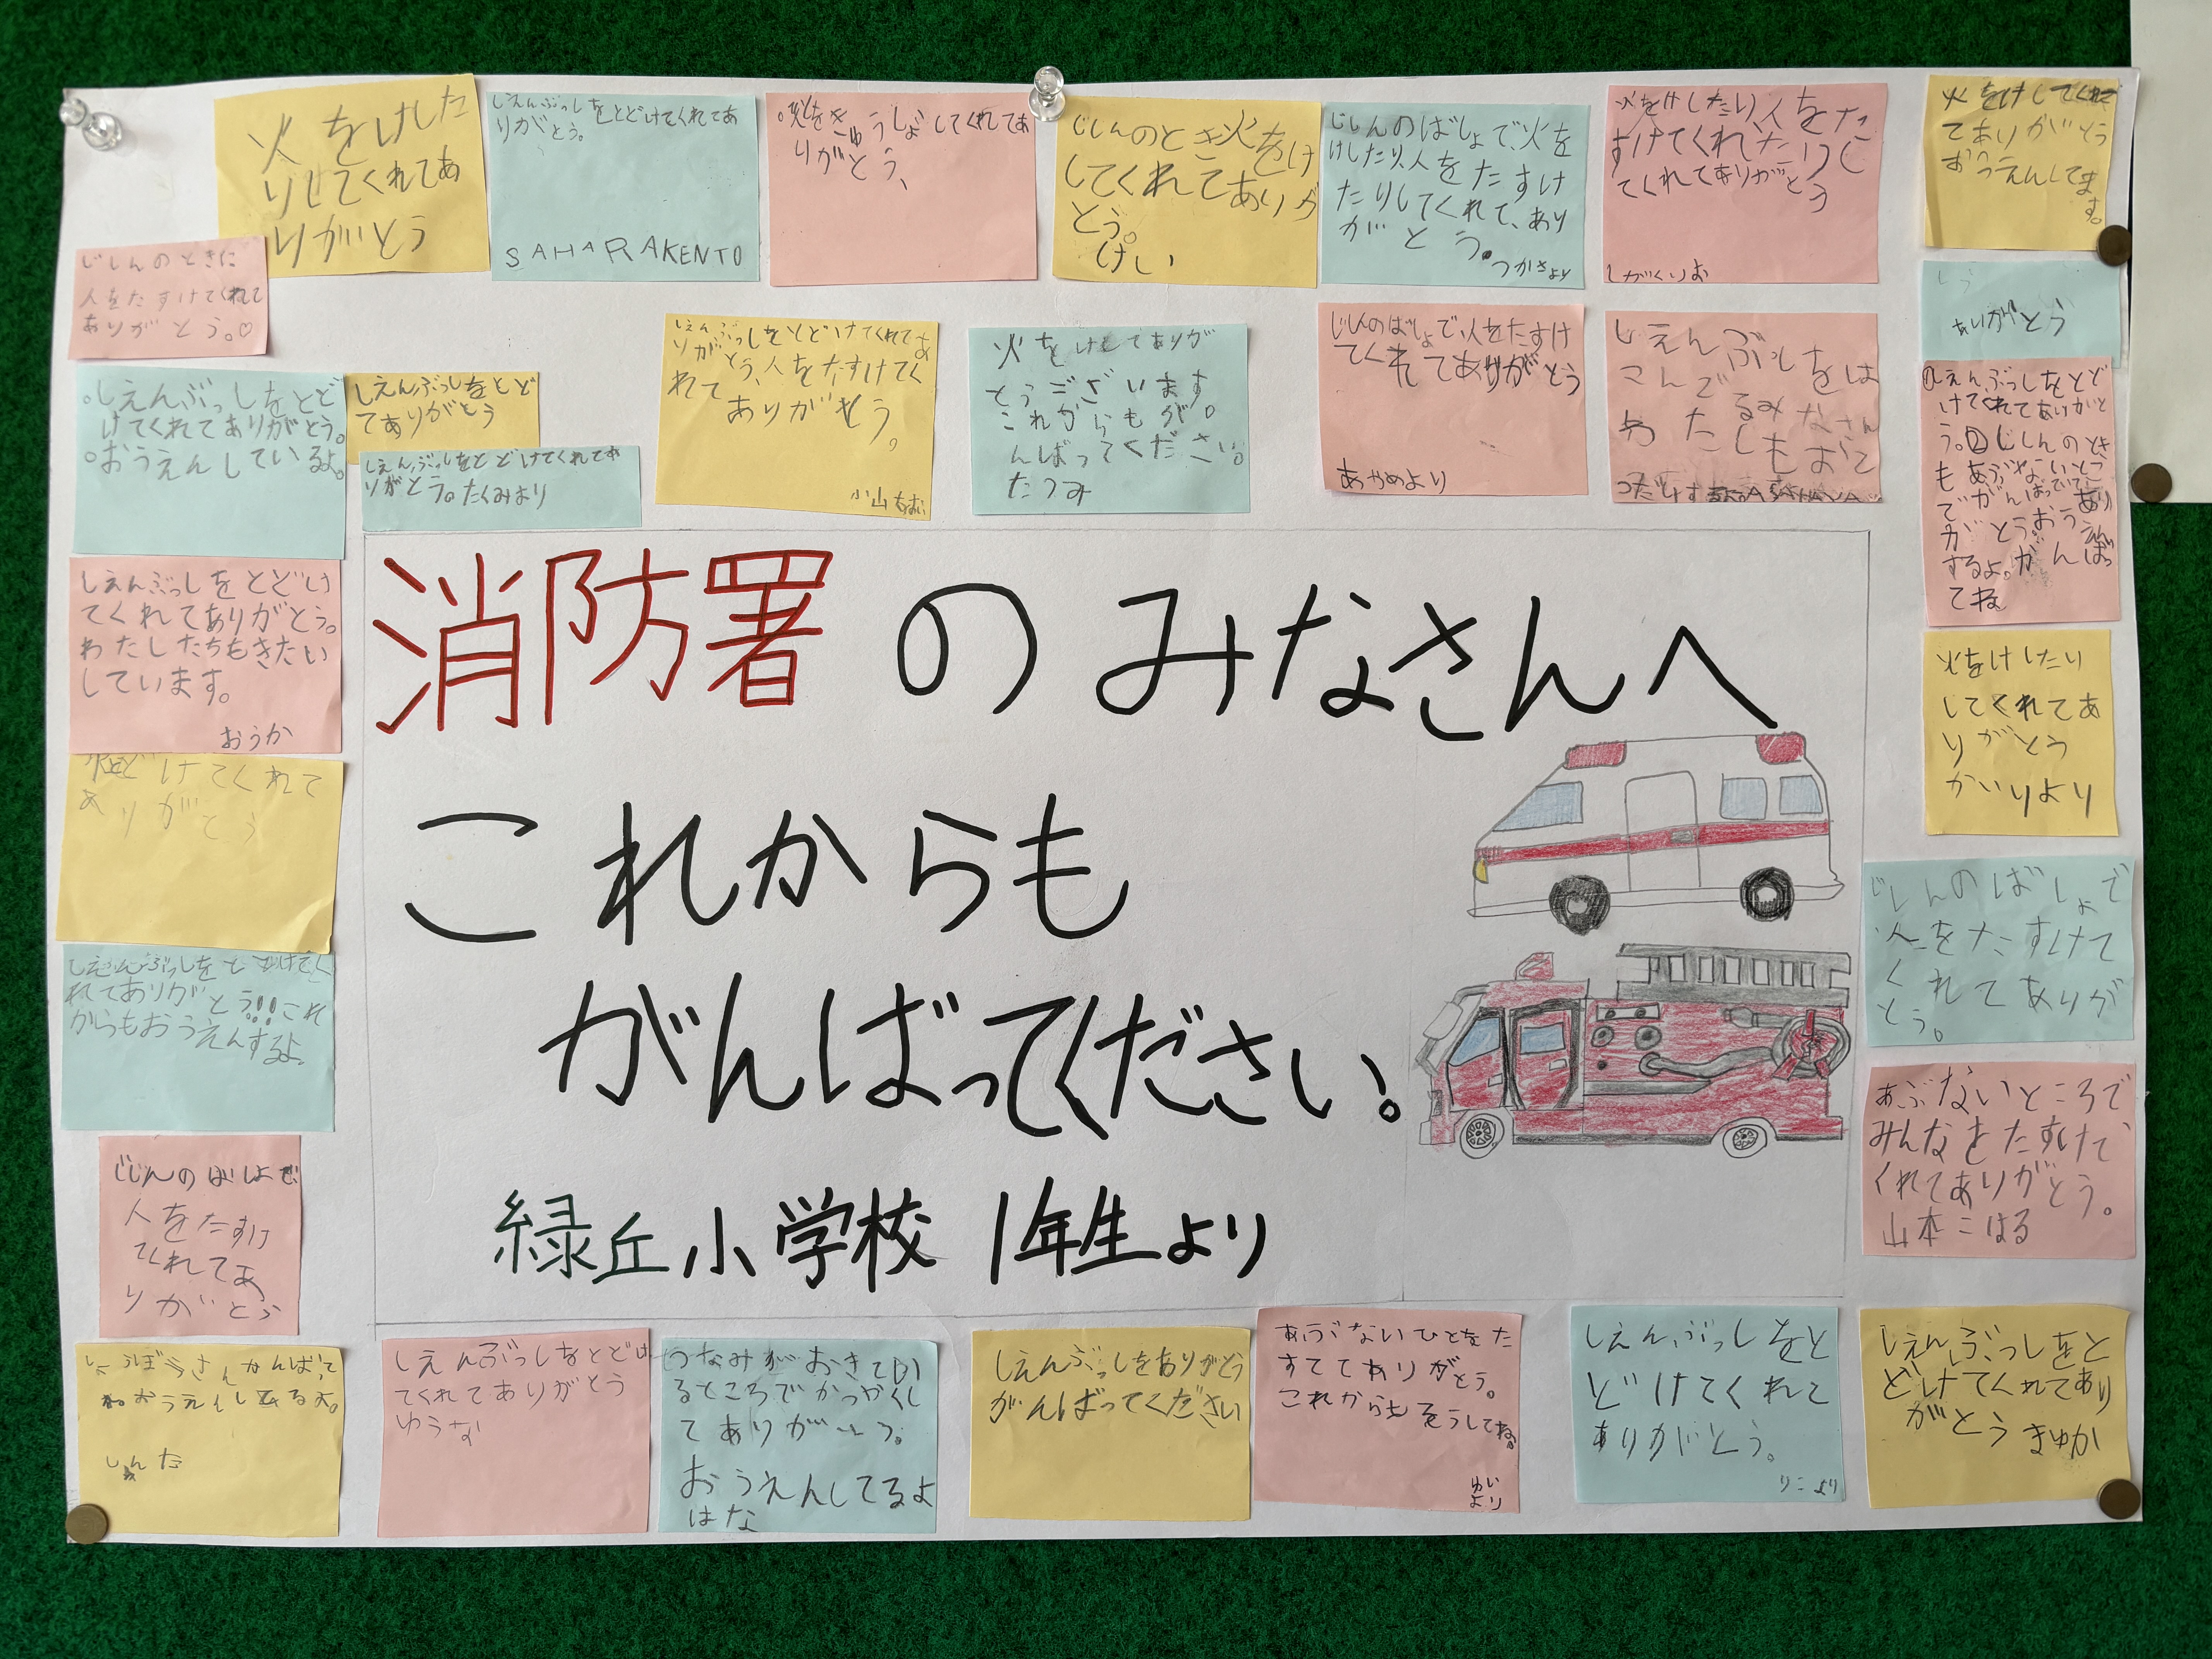 火をけした
りしてくれてあ
りがとう
しえんぶっしをとどけてくれてあ
りがとう。
SAHARAKENTO
きゅうじょしてくれてあ
りがとう、
じしんのとき火をけ
してくれてありが
とう。
けい
じしんのばしょで、火を
けしたり、人をたすけ
たりしてくれて、あり
がとう。
つかさより
火をけしたり、人をた
すけてくれたりし
てくれてありがとう
しがくりお
火をけしてくれて
てありがとう
おうえんしてま
す。
じしんのときに
人をたすけてくれて
ありがとう。♡
ありがとう
しえんぶっしをとど
てありがとう
しえんぶっしをとどけてくれてあ
りがとう。たくみより
しえんぶっしをとどけてくれてあ
りがとう、人をたすけてく
れて
ありがとう。
小山
火をけしてありが
とうございます。
これからもが
んばってください。
たつみ
じしんのばしょで人をたすけ
てくれてありがとう
あやめより
しえんぶっしをは
こんでるみなさん
わたしもおて
つだい
。しえんぶっしをとど
けてくれてありがとう。
。おうえんしているよ。
①しえんぶっしをとど
けてくれてありがと
う。②じしんのとき
もあぶないとこ
でがんばっていて
ありがとう。おうえん
するよ。がんばっ
てね
しえんぶっしをとどけ
てくれてありがとう。
わたしたちもきたい
しています。
おうか
消防署のみなさんへ
これからも
がんばってください。
緑丘小学校 1年生より
火をけしたり
してくれてあ
りがとう
かいりより
どけてくれて
ありがとう
じしんのばしょで
人をたすけて
くれてありが
とう。
しえんぶっしをとどけてく
れてありがとう!!!これ
からもおうえんするよ。
あぶないところで
みんなをたすけて、
くれてありがとう。
山本こはる
じしんのばしょで
人をたすけ
てくれてあ
りがとう
しょうぼうさんがんばって
ね。おうえんしてるよ。
しんた
しえんぶっしをとどけ
てくれてありがとう
ゆうな
つなみがおきてい
るところでかつやくし
てありがとう。
おうえんしてるよ
はな
しえんぶっしをありがとう
がんばってください
あぶないひとをた
すててありがとう。
これからもそうしてね。
ゆい
より
しえんぶっしをと
どけてくれて
ありがとう。
りこより
しえんぶっしをと
どけてくれてあり
がとう まゆか